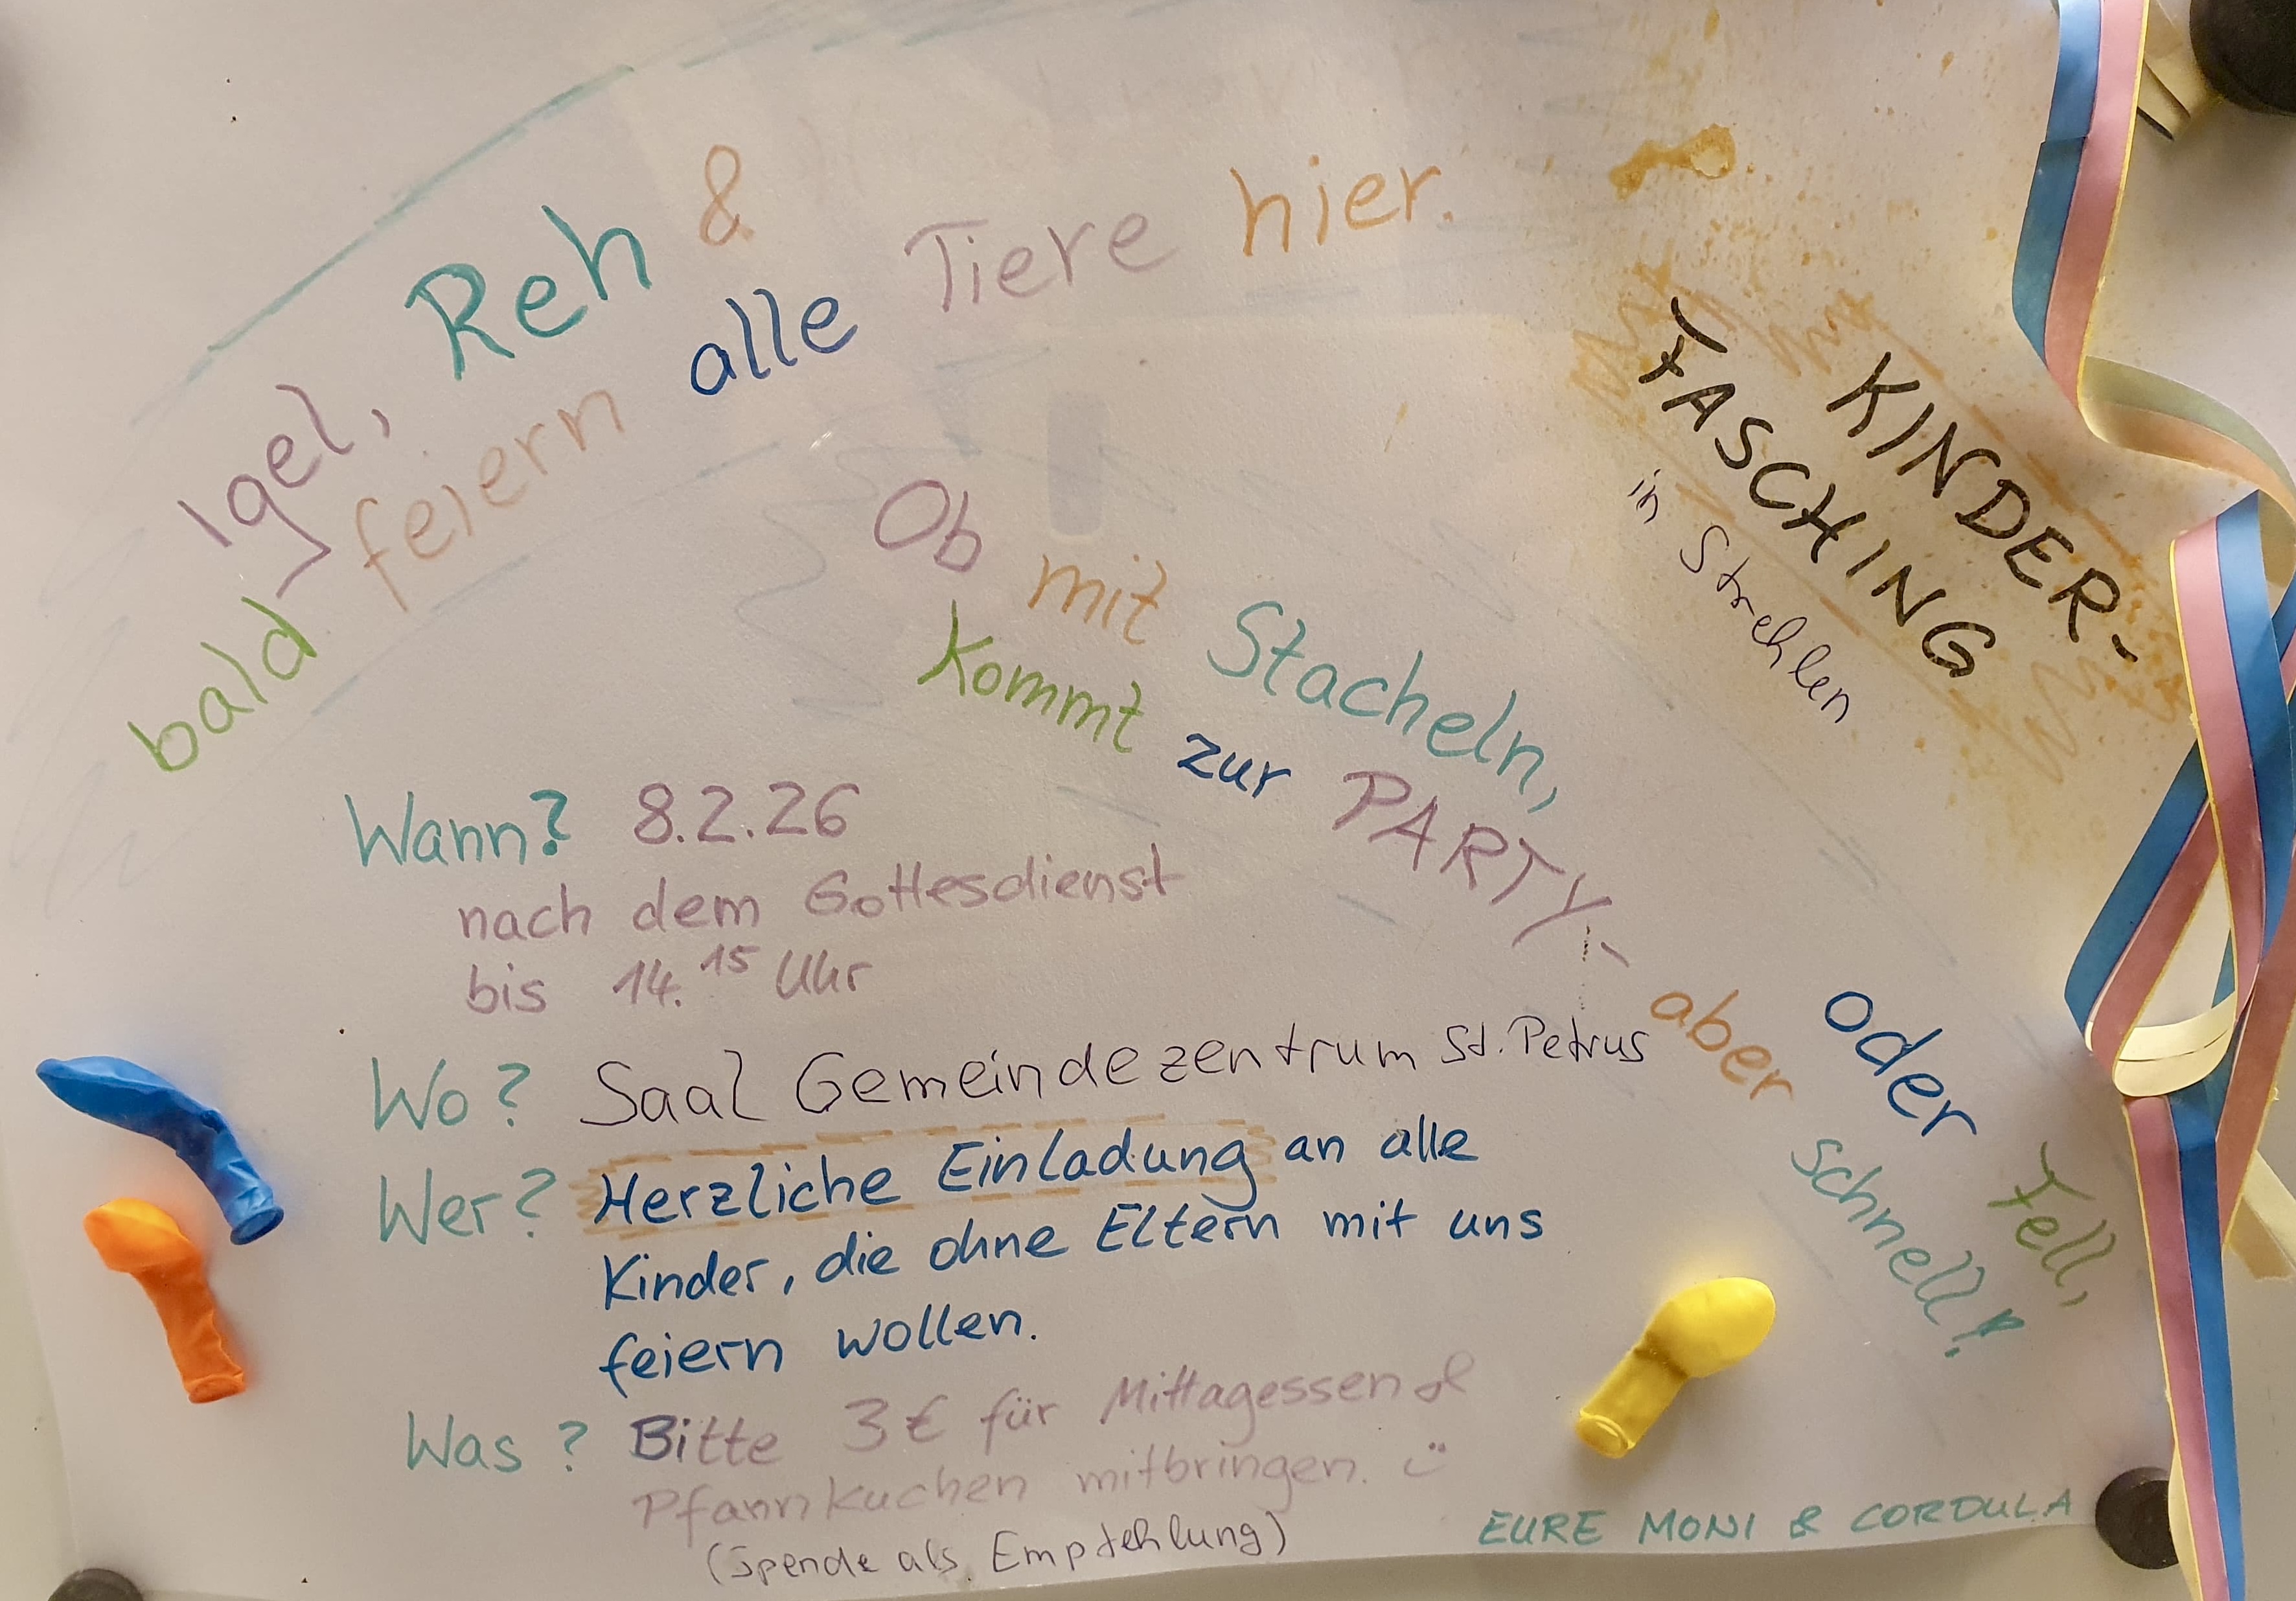 Igel, Reh &
bald feiern alle Tiere hier.
KINDER-
FASCHING
in Strehlen
Ob mit Stacheln, oder Fell,
kommt zur PARTY, aber schnell!
Wann? 8.2.26
nach dem Gottesdienst
bis 14.15 Uhr
Wo? Saal Gemeindezentrum St. Petrus
Wer? Herzliche Einladung an alle
Kinder, die ohne Eltern mit uns
feiern wollen.
Was? Bitte 3€ für Mittagessen &
Pfannkuchen mitbringen. ü
(Spende als Empfehlung)
EURE MONI & CORDULA